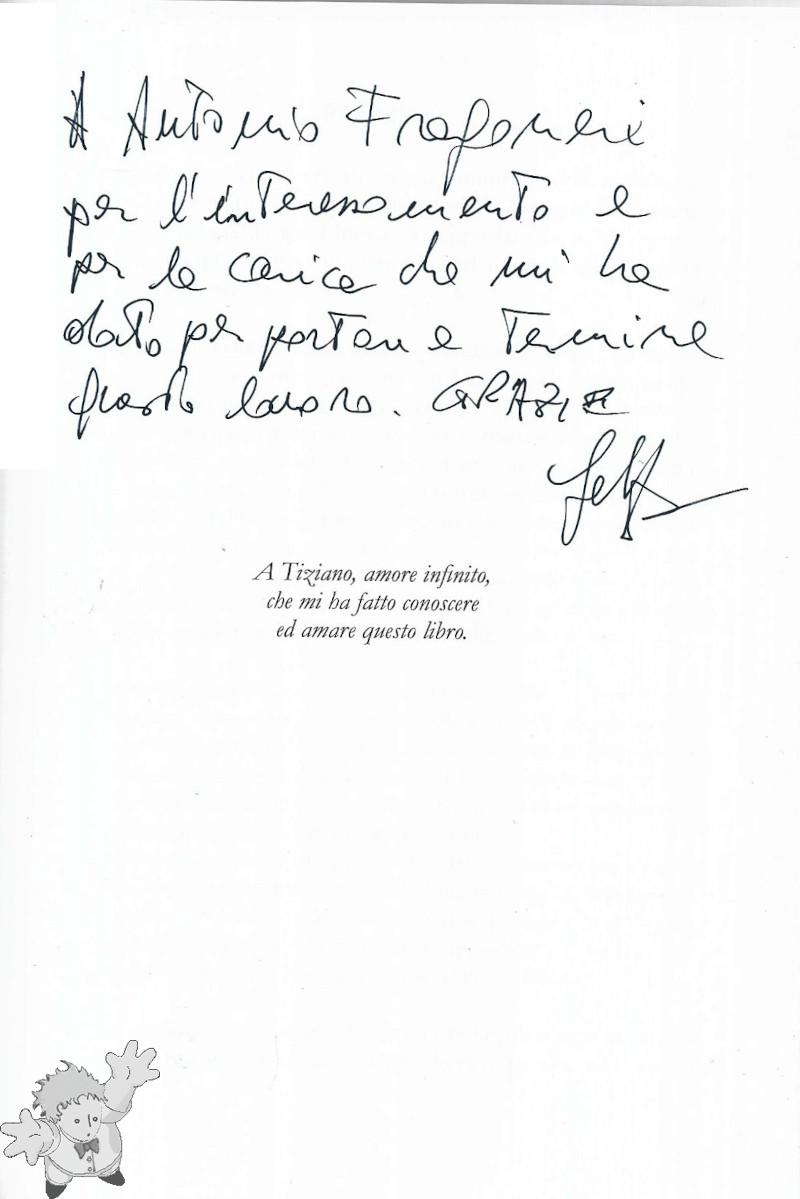 A Antonio
per l'interessamento e
per la carica che mi ha
dato per portare a termine
questo lavoro. GRAZIE
A Tiziano, amore infinito,
che mi ha fatto conoscere
ed amare questo libro.